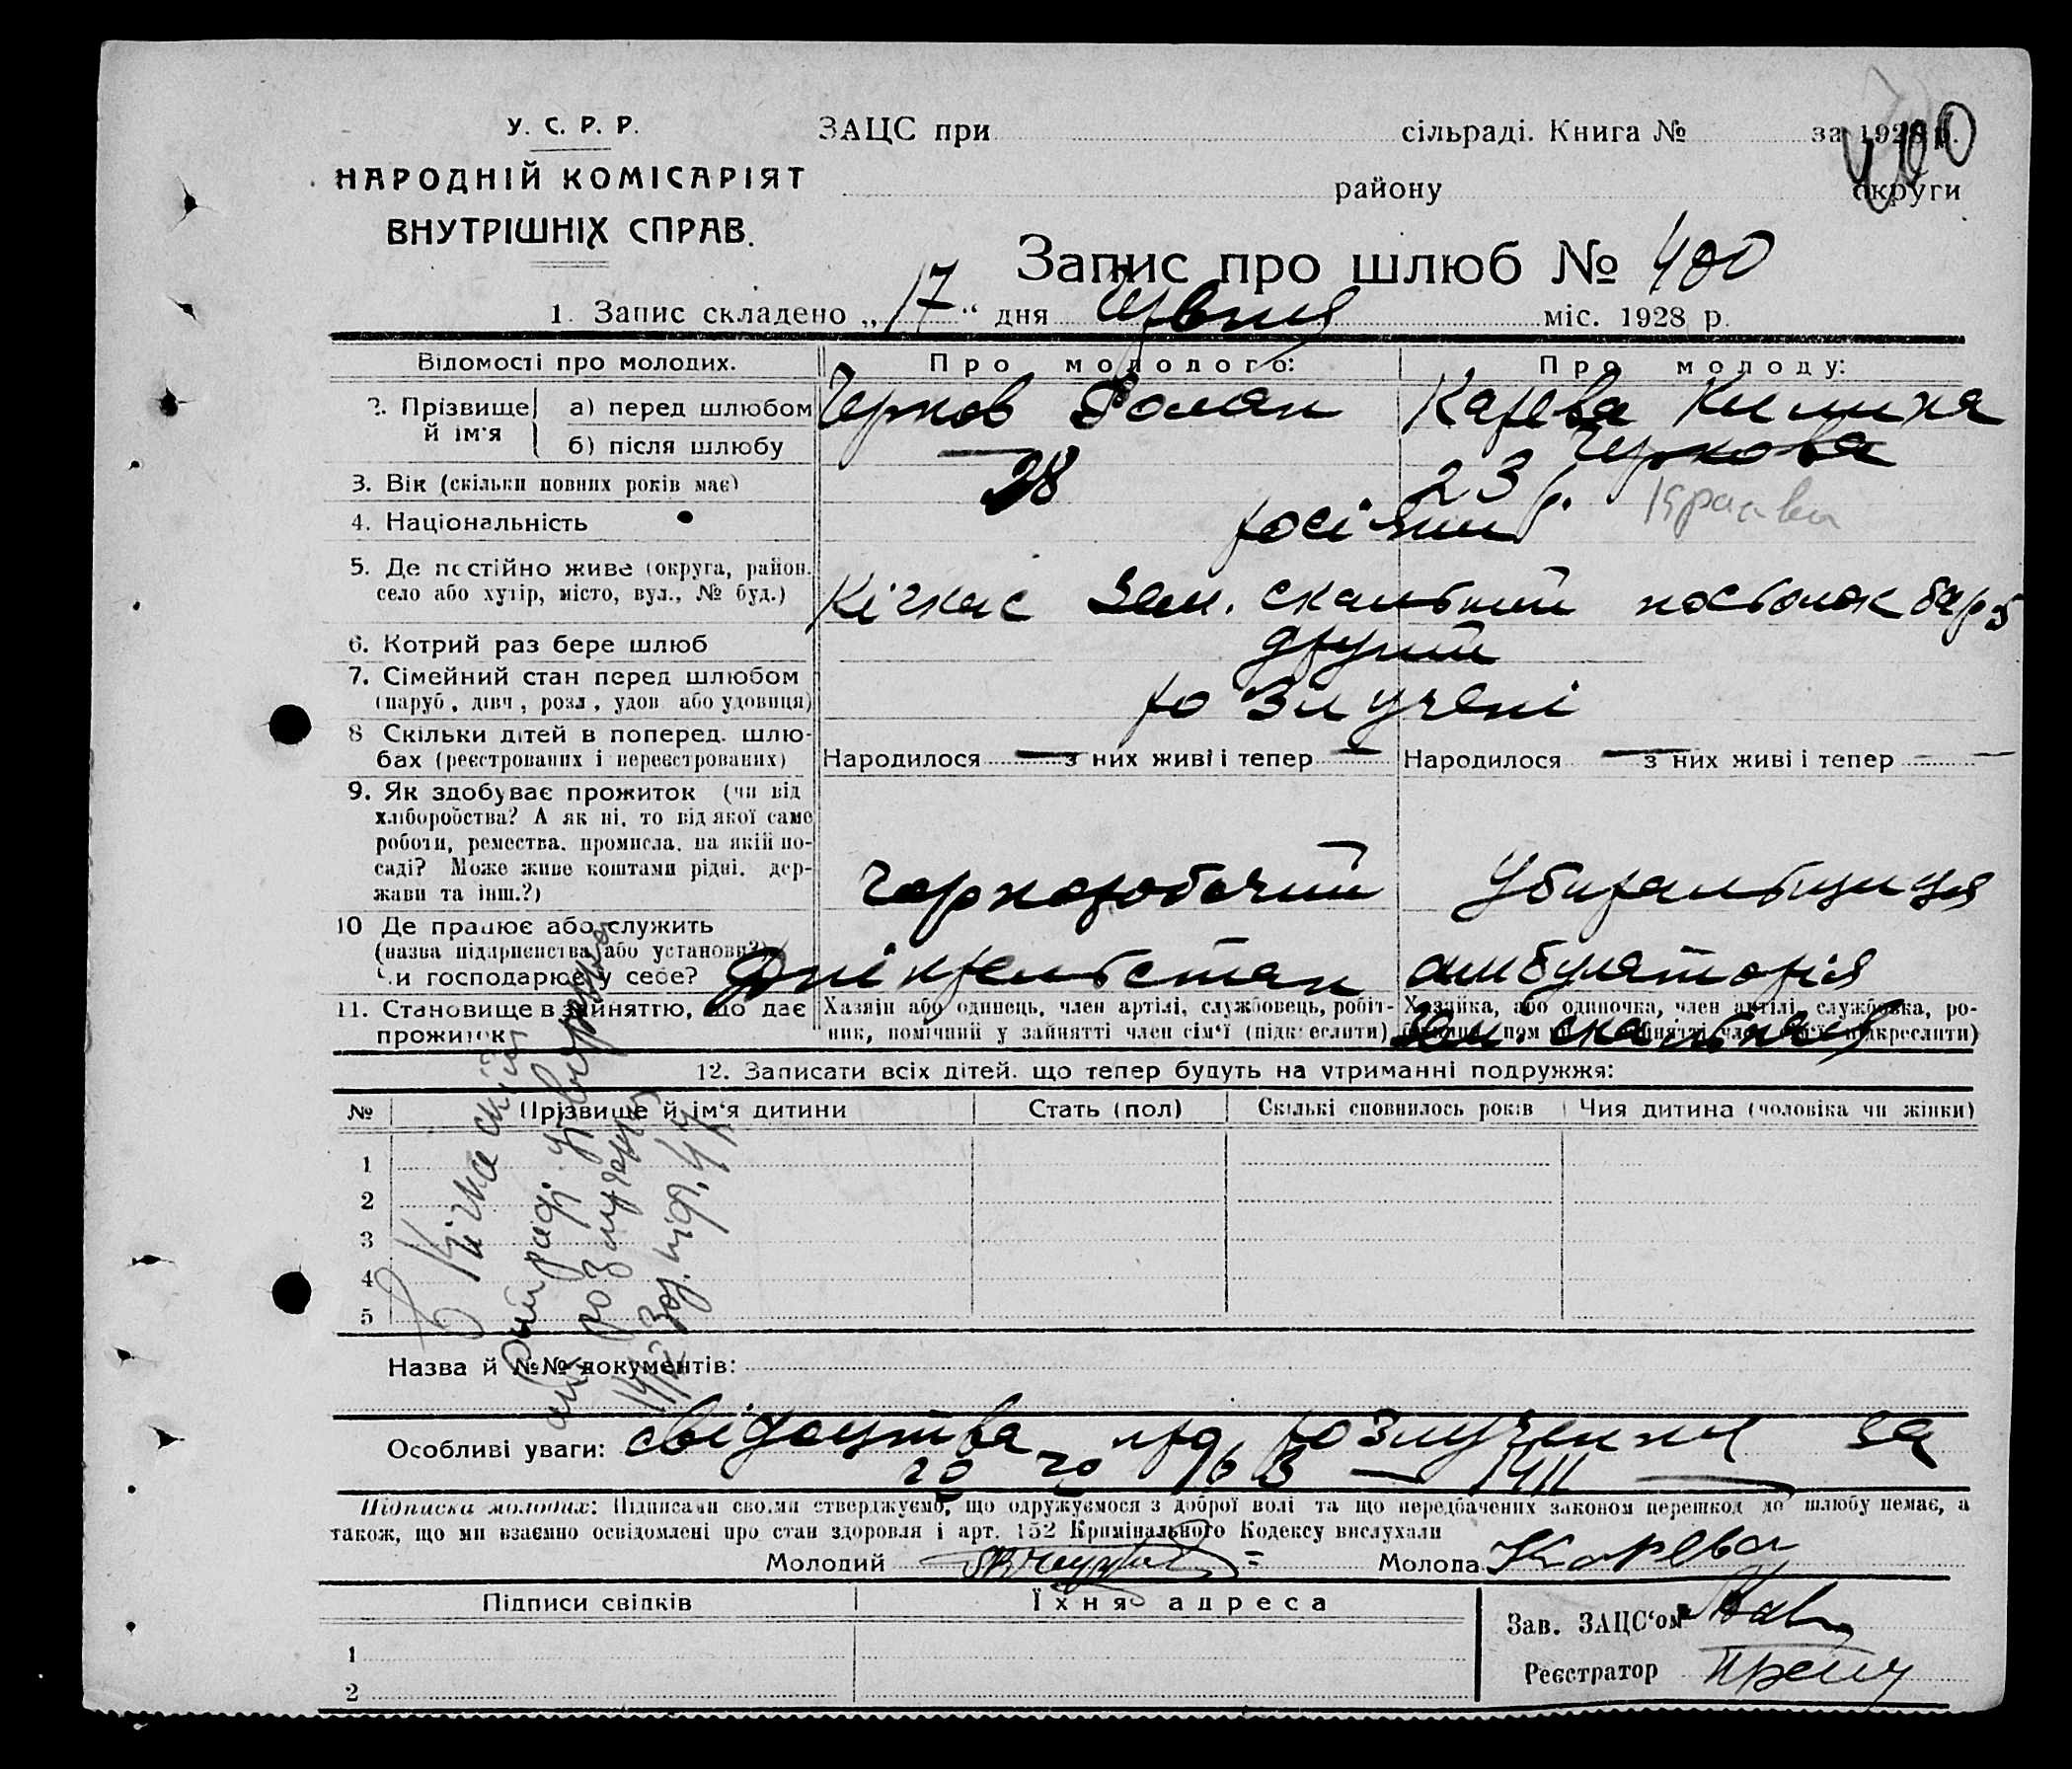 У. С. Р. Р.
НАРОДНІЙ КОМІСАРІЯТ
ВНУТРІШНІХ СПРАВ.
ЗАЦС при сільраді. Книга № за 1928 р.
400
району округи
Запис про шлюб № 400
1. Запис складено „17“ дня Червня міс. 1928 р.
Відомості про молодих. Про молодого: Про молоду:
2. Прізвище й ім'я
а) перед шлюбом Чернов Роман Карева
б) після шлюбу — Чернова
3. Вік (скільки повних років має) 28 23 р.
4. Національність росіяни
5. Де постійно живе (округа, район, село або хутір, місто, вул., № буд.) Кічкас Зем. скальний посьолок бар 5
6. Котрий раз бере шлюб другий
7. Сімейний стан перед шлюбом (паруб., дівч., розл., удов. або удовиця) розлучені
8 Скільки дітей в поперед. шлюбах (реєстрованих і нереєстрованих) Народилося — з них живі і тепер — Народилося — з них живі і тепер —
9. Як здобуває прожиток (чи від хліборобства? А як ні, то від якої саме роботи, ремества, промисла, на якій посаді? Може живе коштами рідні, держави та інш.?) Чорноробочий Убиральщиця
10 Де працює або служить (назва підприєнства або установи?) Чи господарює у себе? амбулаторія
11. Становище в зайняттю, що дає прожиток
Хазяін або одинець, член артілі, службовець, робітник, помічний у зайнятті член сім'ї (підкреслити)
Хазяйка, або одиночка, член артілі, службовка, ро-
12. Записати всіх дітей, що тепер будуть на утриманні подружжя:
№ Прізвище й ім'я дитини Стать (пол) Скількі сповнилось років Чия дитина (чоловіка чи жінки)
1
2
3
4
5
В Кічкаскій
розлучення
Назва й №№ документів:
Особливі уваги: свідоцтва про розлучення за
Підписка молодих: Підписами своїми стверджуємо, що одружуємося з доброї волі та що передбачених законом перешкод до шлюбу немає, а
також, що ми взаємно освідомлені про стан здоровля і арт. 152 Кримінального Кодексу вислухали
Молодий Молода Карева
Підписи свідків Їхня адреса
Зав. ЗАЦС'ом
Реєстратор
1
2